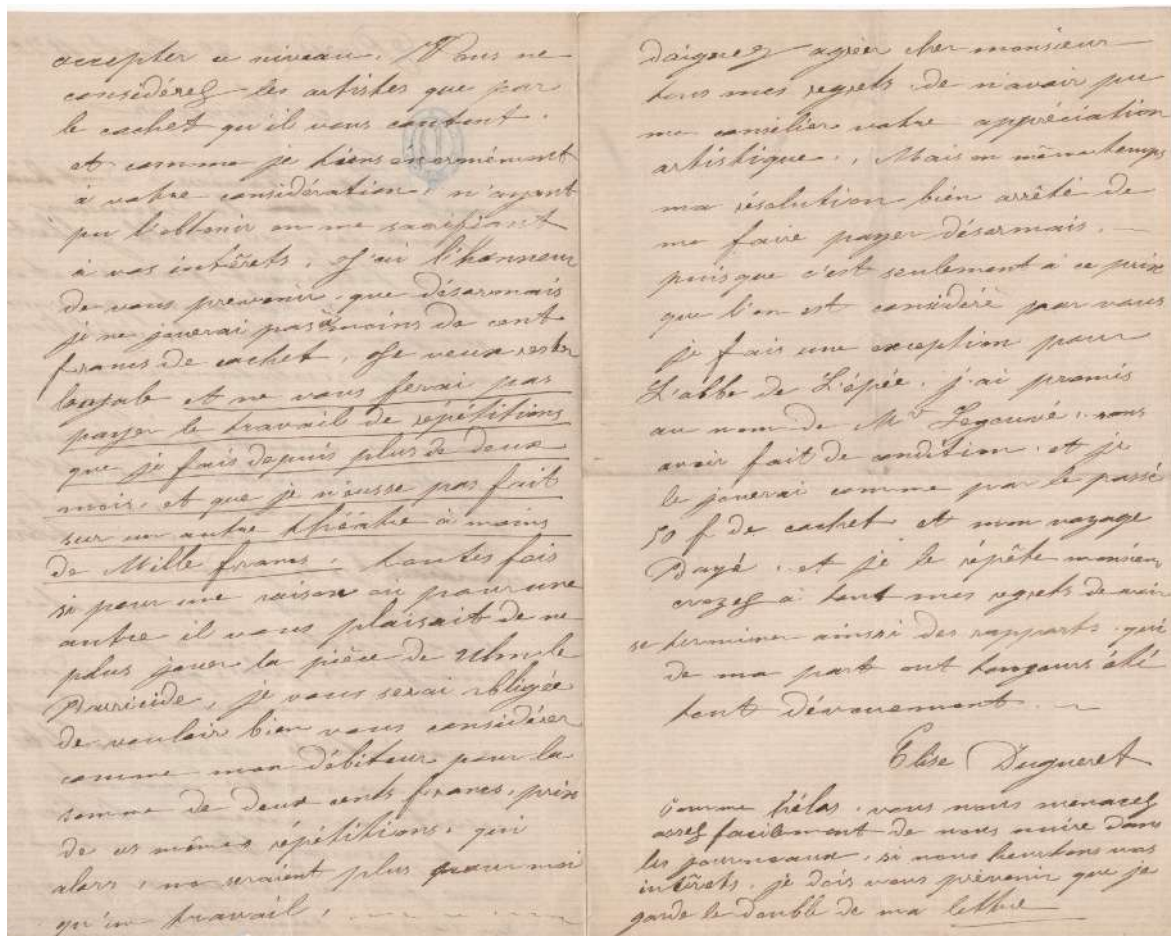 accepter ce niveau. Vous ne
considérez les artistes que par
le cachet qu'il vous coutent.
et comme je tiens énormément
à votre considération, n'ayant
pu l'obtenir en me sacrifiant
à vos intérêts, J'ai l'honneur
de vous prevenir, que désormais
je ne jouerai pas à moins de cent
francs de cachet, Je veux rester
loyale et ne vous ferai pas
payer le travail de répétitions
que je fais depuis plus de deux
mois, et que je n'eusse pas fait
sur un autre théâtre à moins
de Mille francs. toutes fois
si pour une raison ou pour une
autre il vous plaisait de ne
plus jouer la pièce de
Parricide, je vous serai obligée
de vouloir bien vous considérer
comme mon débiteur pour la
somme de deux cents francs, prix
de ces mêmes répétitions, qui
alors, ne seraient plus pour moi
qu'un travail,
Daignez agréer cher monsieur
tous mes regrets de n'avoir pu
me consilier votre appréciation
artistique., Mais en même temps
ma résolution bien arrêté de
me faire payer désormais. —
puisque c'est seulement à ce prix
que l'on est considéré par vous
je fais une exception pour
L'abbé de L'épée. j'ai promis
au nom de Mr Legouvé. sans
avoir fait de condition. et je
le jouerai comme par le passé
50 f de cachet et mon voyage
Payé. et je le répête monsieur
croyez à tout mes regrets de voir
se terminer ainsi des rapports qui
de ma part ont toujours été
tout dévouement. ~
Elise Duguerret
Comme hélas. vous nous menacez
assez facilement de nous nuire dans
les journeaux, si nous heurtons vos
intêrets, je dois vous prévenir que je
garde le double de ma lettre